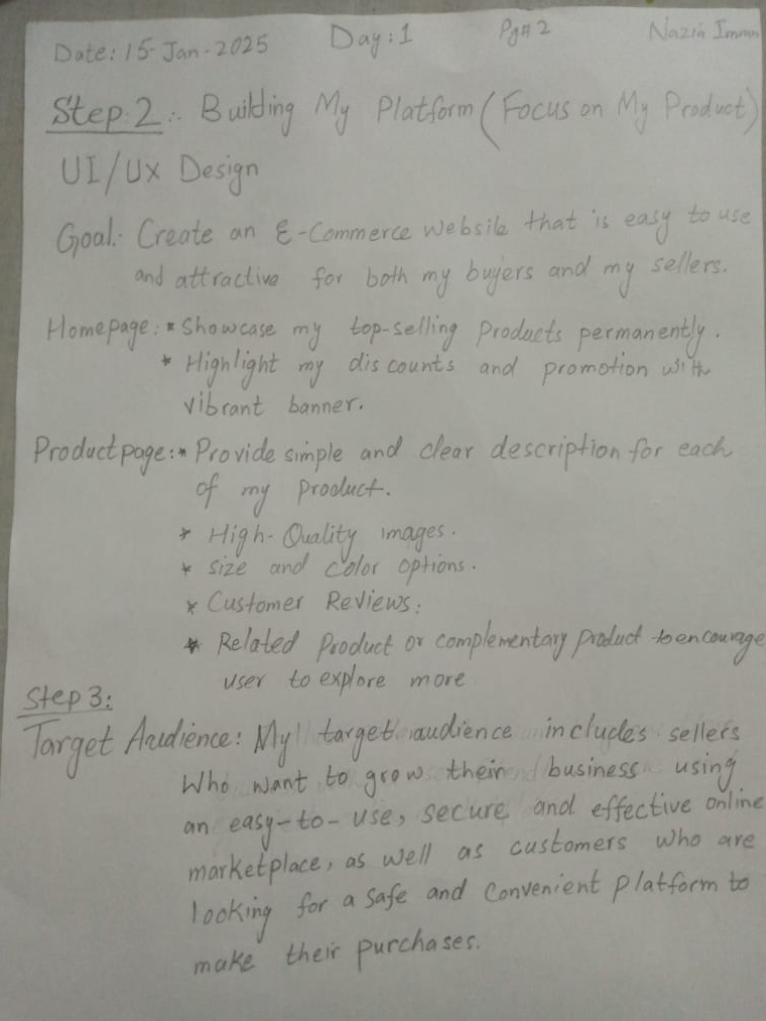 Date: 15-Jan-2025 Day:1 Pg#2 Nazia Imran
Step:2:- Building My Platform (Focus on My Product)
UI/UX Design
Goal:- Create an E-Commerce website that is easy to use
and attractive for both my buyers and my sellers.
Homepage: * Showcase my top-selling Products permanently.
* Highlight my discounts and promotion with
vibrant banner.
Product page: * Provide simple and clear description for each
of my product.
* High-Quality images.
* Size and color options.
* Customer Reviews:
* Related Product or complementary product to encourage
user to explore more
Step 3:
Target Audience: My target audience includes sellers
Who want to grow their business using
an easy-to-use, secure and effective online
marketplace, as well as customers who are
looking for a safe and convenient platform to
make their purchases.